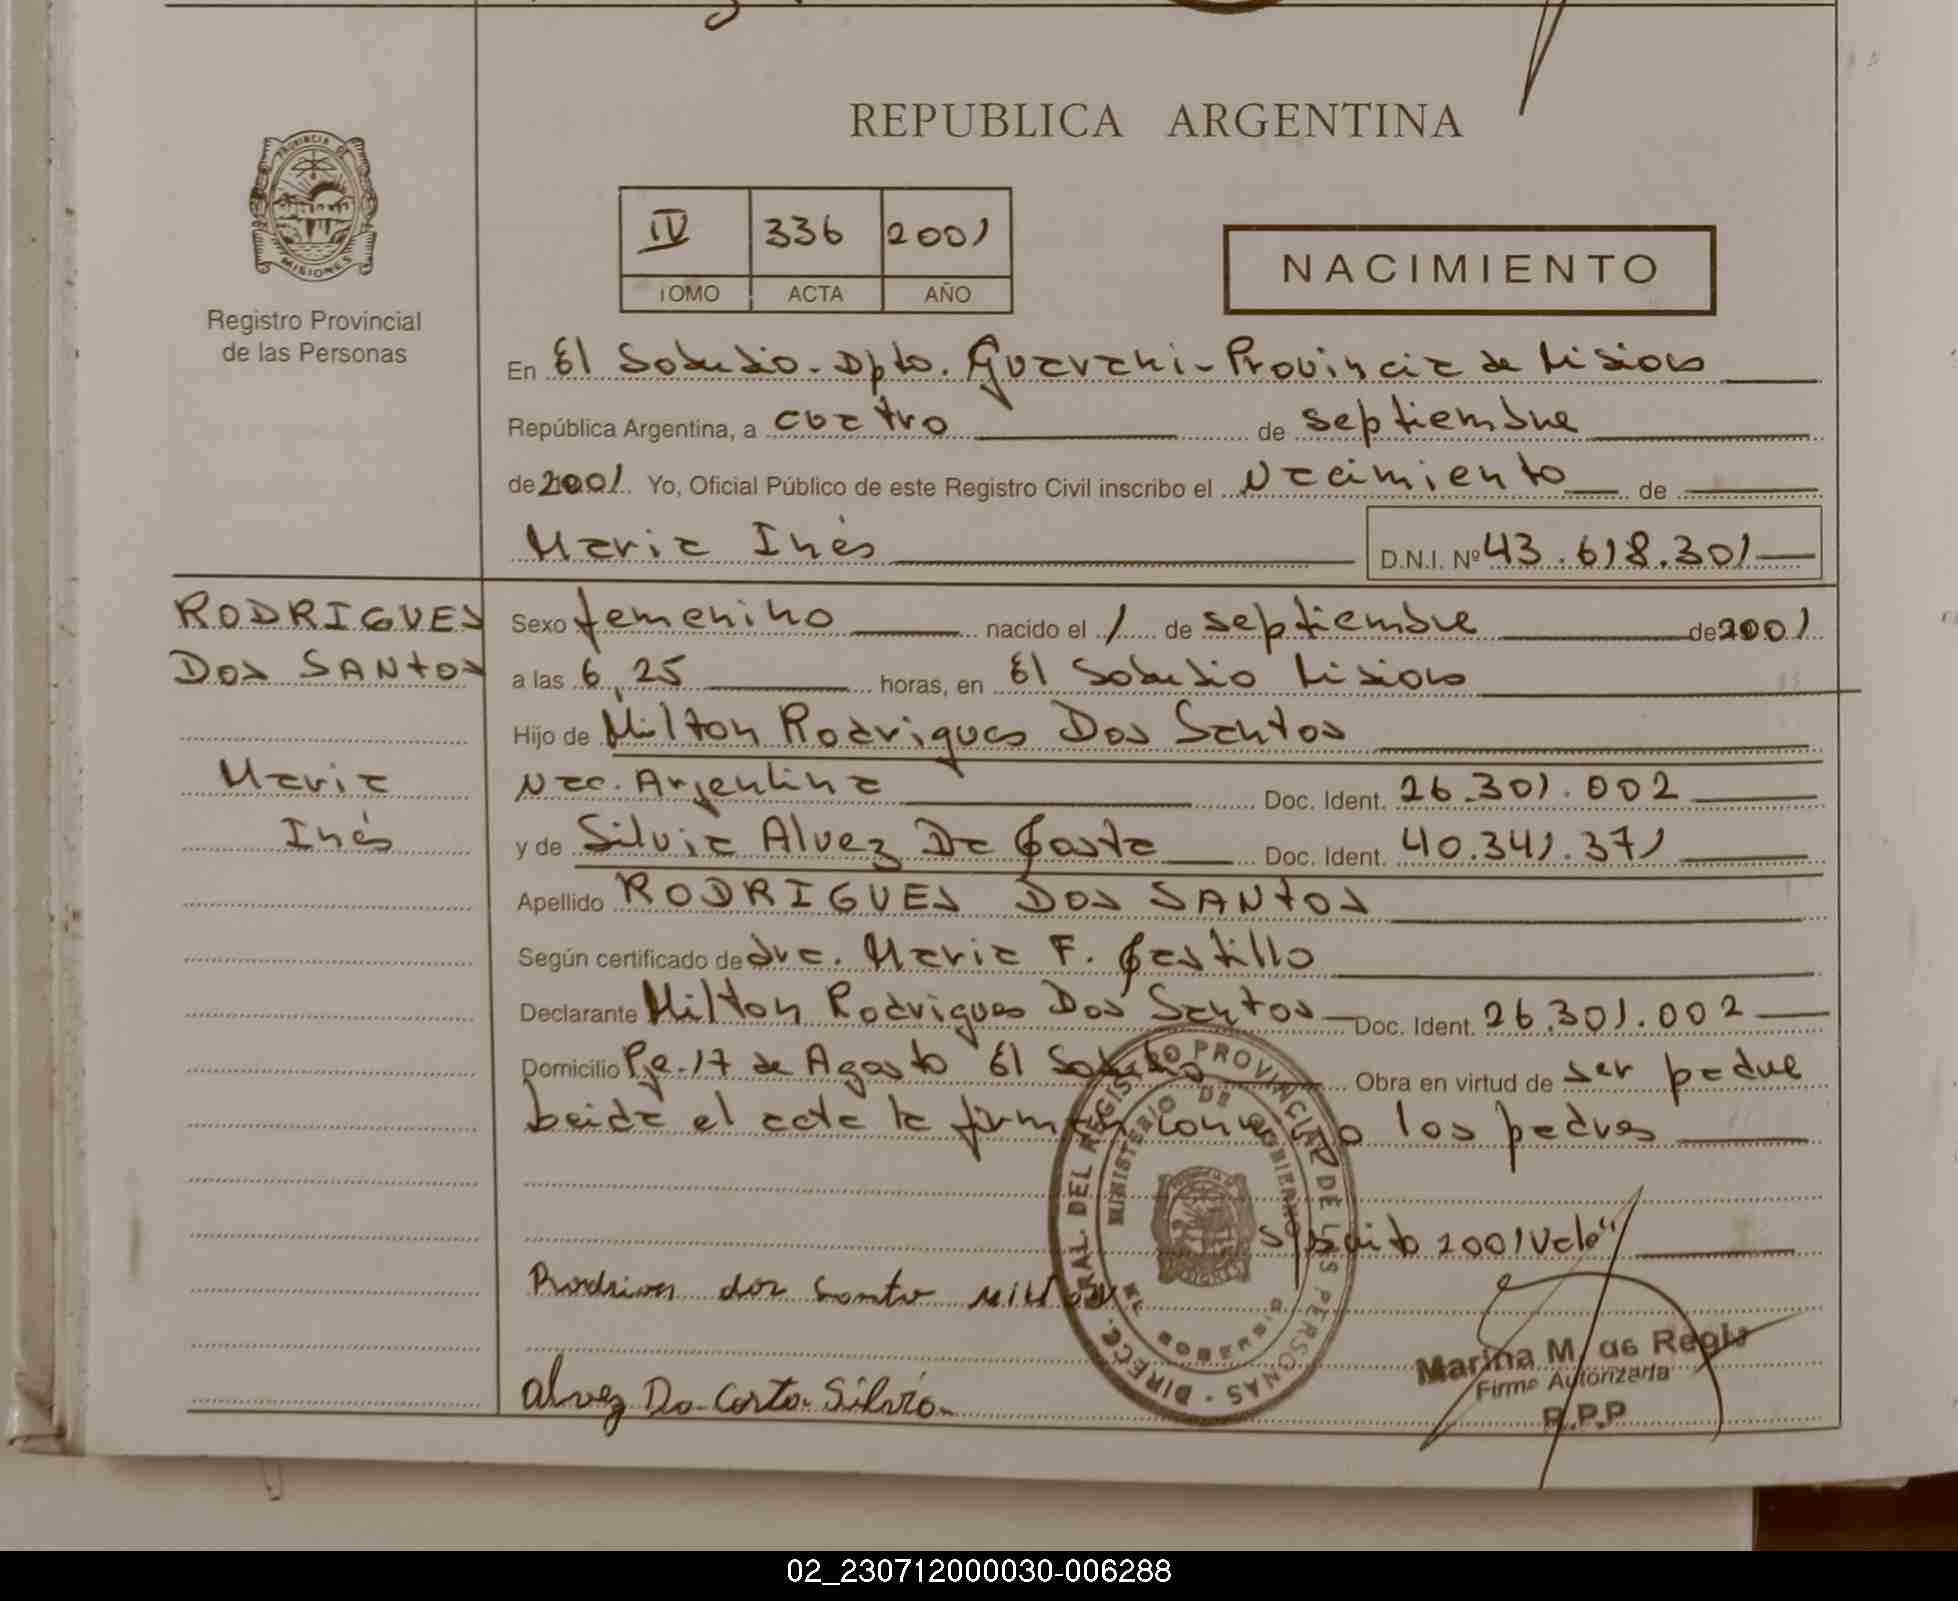 REPUBLICA ARGENTINA
PROVINCIA DE
MISIONES
Registro Provincial
de las Personas
IV 336 2001
TOMO ACTA AÑO
NACIMIENTO
En El Soberbio - Dpto. Guarani - Provincia de Misiones
República Argentina, a cuatro de septiembre
de 2001. Yo, Oficial Público de este Registro Civil inscribo el Nacimiento de
Maria Inés D.N.I. Nº 43.618.301
RODRIGUES
DOS SANTOS
Maria
Inés
Sexo femenino nacido el 1 de septiembre de 2001
a las 6,25 horas, en El Soberbio Misiones
Hijo de Milton Rodrigues Dos Santos
Nac. Argentina Doc. Ident. 26.301.002
y de Silvia Alvez Da Costa Doc. Ident. 40.341.371
Apellido RODRIGUES DOS SANTOS
Según certificado de dra. Maria F. Castillo
Declarante Milton Rodrigues Dos Santos Doc. Ident. 26.301.002
Domicilio Pje. 17 de Agosto El Soberbio Obra en virtud de ser padre
Leida el acta la firman conmigo los padres
S/ bdito 2001 Vale"
Rodrigues dos Santo Milton
Alvez Da Costa Silvia
DIRECC. GRAL. DEL REGISTRO PROVINCIAL DE LAS PERSONAS
MINISTERIO DE GOBIERNO
MISIONES
EL SOBERBIO
Marina M. de Regis
Firma Autorizada
R.P.P
02_230712000030-006288